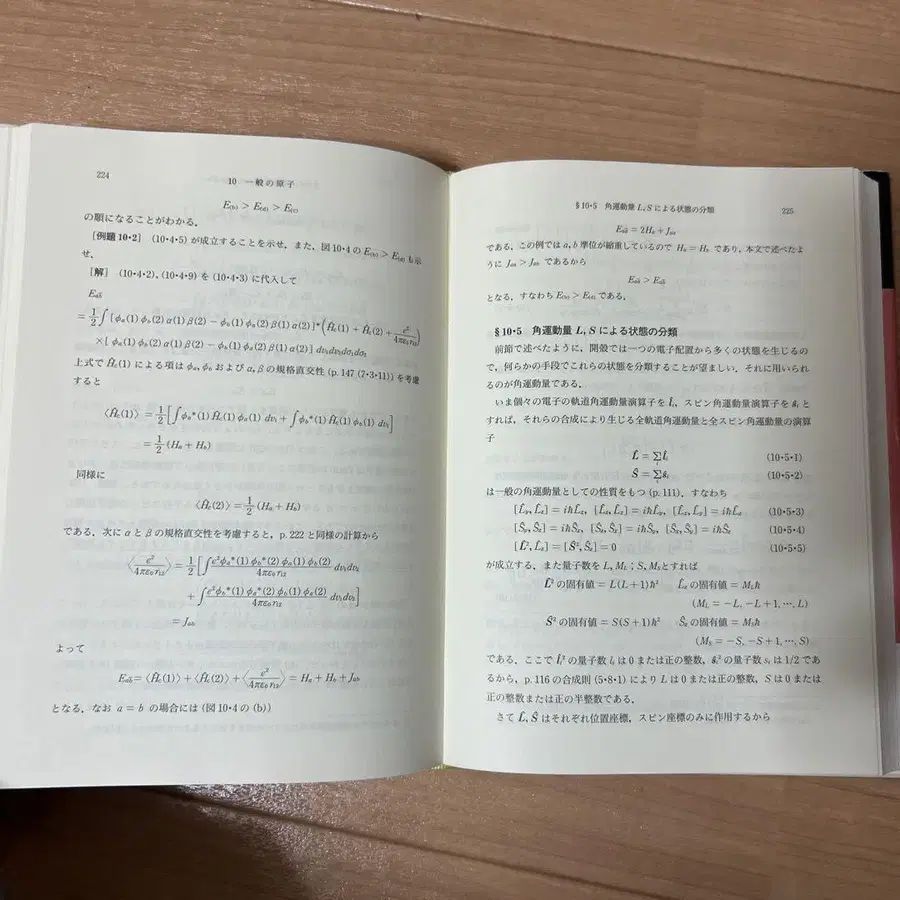 224
10 一般の原子
E(b) > E(d) > E(c)
の順になることがわかる.
[例題10・2] (10・4・5) が成立することを示せ, また, 図10・4の E(b) > E(d) も示
せ.
[解] (10・4・2), (10・4・9) を (10・4・3) に代入して
= 1/2 ∫ [φa(1) φb(2) α(1) β(2) − φb(1) φa(2) β(1) α(2)]* (Ĥc(1) + Ĥc(2) + e²/4πε₀r₁₂)
×[φa(1) φb(2) α(1) β(2) − φb(1) φa(2) β(1) α(2)] dv₁dv₂dσ₁dσ₂
上式で Ĥc(1) による項は φa, φb および α, β の規格直交性 (p. 147 (7・3・11)) を考慮
すると
⟨Ĥc(1)⟩ = 1/2 [∫φa*(1) Ĥc(1) φa(1) dv₁ + ∫φb*(1) Ĥc(1) φb(1) dv₁]
= 1/2 (Ha + Hb)
同様に
⟨Ĥc(2)⟩ = 1/2 (Ha + Hb)
である. 次に α と β の規格直交性を考慮すると, p. 222 と同様の計算から
⟨e²/4πε₀r₁₂⟩ = 1/2 [∫ e²φa*(1) φb*(2) φa(1) φb(2)/4πε₀r₁₂ dv₁dv₂
+ ∫ e²φb*(1) φa*(2) φb(1) φa(2)/4πε₀r₁₂ dv₁dv₂]
= Jab
よって
= ⟨Ĥc(1)⟩ + ⟨Ĥc(2)⟩ + ⟨e²/4πε₀r₁₂⟩ = Ha + Hb + Jab
となる. なお a = b の場合には (図10・4 の (b))
§10・5 角運動量 L, S による状態の分類
225
= 2Ha + Jaa
である. この例では a, b 準位が縮重しているので Ha = Hb であり, 本文で述べたよ
うに Jaa > Jab であるから
となる. すなわち E(b) > E(d) である.
§10・5 角運動量 L, S による状態の分類
前節で述べたように, 開殻では一つの電子配置から多くの状態を生じるの
で, 何らかの手段でこれらの状態を分類することが望ましい. それに用いられ
るのが角運動量である.
いま個々の電子の軌道角運動量演算子を l̂i, スピン角運動量演算子を ŝi と
すれば, それらの合成により生じる全軌道角運動量と全スピン角運動量の演算
子
L̂ = Σi l̂i (10・5・1)
Ŝ = Σi ŝi (10・5・2)
は一般の角運動量としての性質をもつ (p. 111). すなわち
[L̂x, L̂y] = iħL̂z, [L̂y, L̂z] = iħL̂x, [L̂z, L̂x] = iħL̂y (10・5・3)
[Ŝx, Ŝy] = iħŜz, [Ŝy, Ŝz] = iħŜx, [Ŝz, Ŝx] = iħŜy (10・5・4)
[L̂², L̂z] = [Ŝ², Ŝz] = 0 (10・5・5)
が成立する. また量子数を L, ML ; S, MS とすれば
L̂² の固有値 = L(L+1)ħ² L̂z の固有値 = MLħ
(ML = −L, −L+1, …, L)
Ŝ² の固有値 = S(S+1)ħ² Ŝz の固有値 = MSħ
(MS = −S, −S+1, …, S)
である. ここで l̂i² の量子数 li は 0 または正の整数, ŝi² の量子数 si は 1/2 であ
るから, p. 116 の合成則 (5・8・1) により L は 0 または正の整数, S は 0 または
正の整数または正の半整数である.
さて L̂, Ŝ はそれぞれ位置座標, スピン座標のみに作用するから